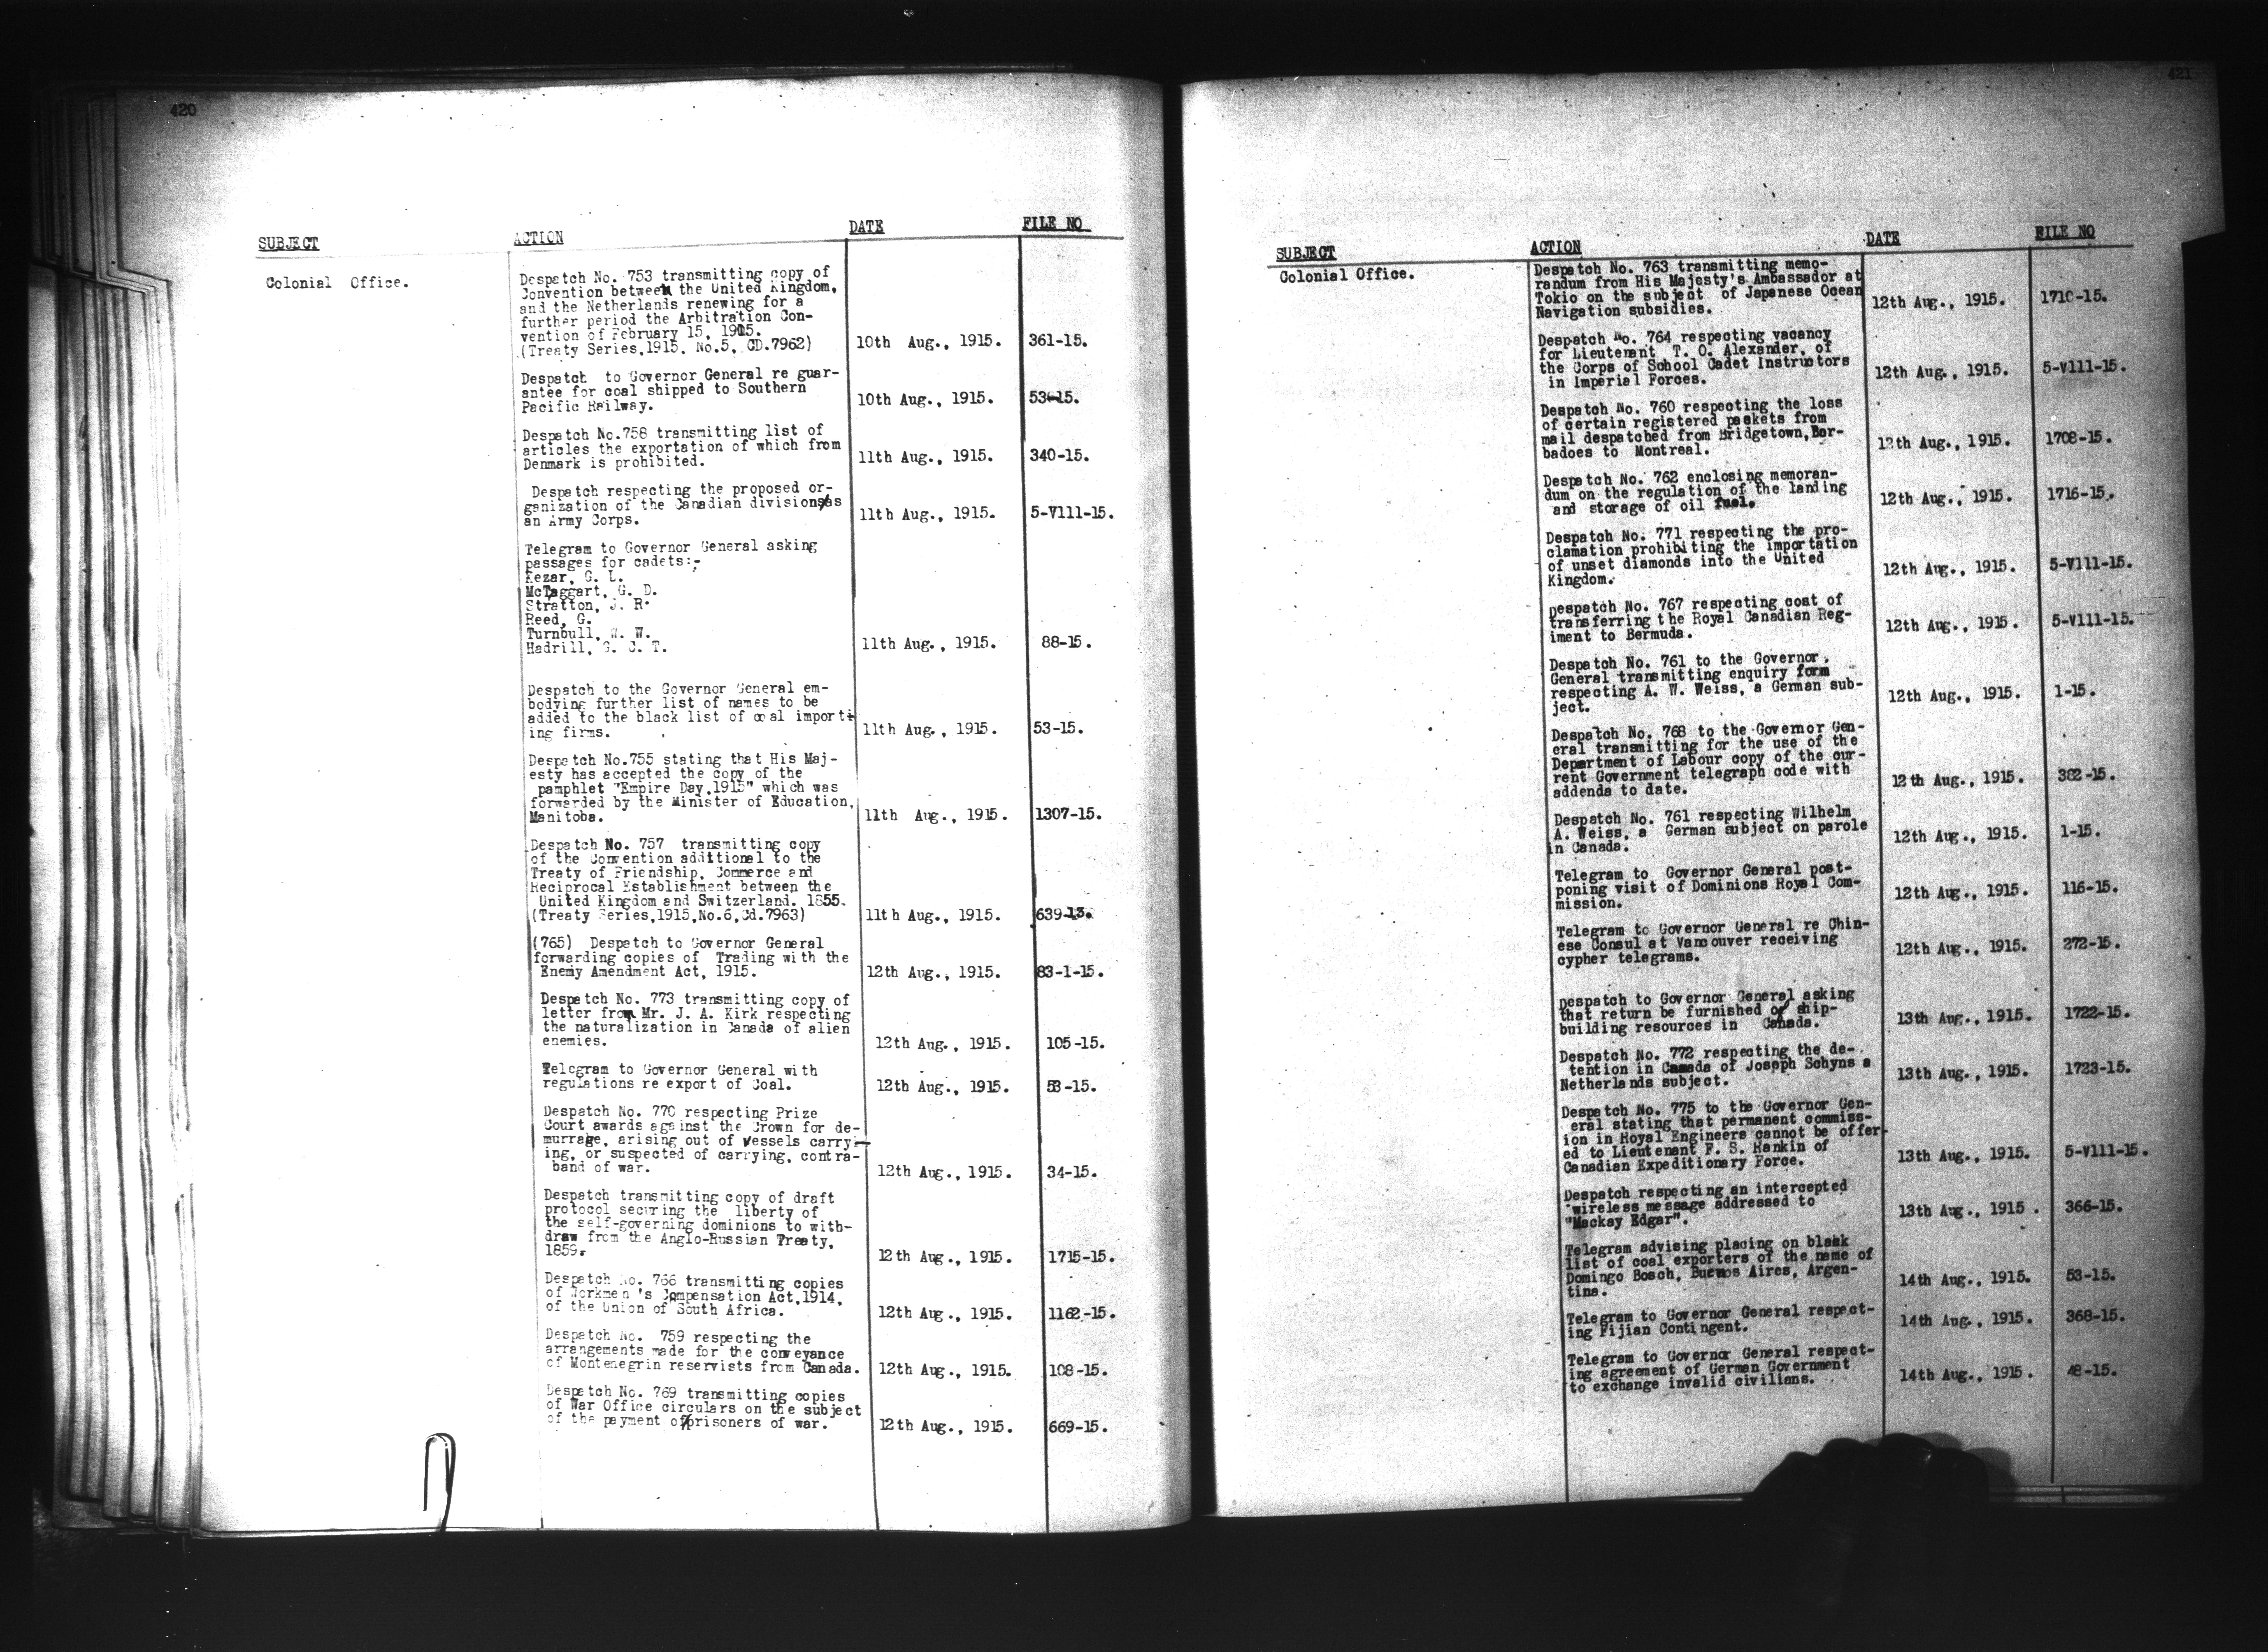 420
SUBJECT ACTION DATE FILE NO
Colonial Office.
Despatch No. 753 transmitting copy of
Convention between the United Kingdom,
and the Netherlands renewing for a
further period the Arbitration Con-
vention of February 15, 1905.
(Treaty Series,1915. No.5, CD.7962) 10th Aug., 1915. 361-15.
Despatch to Governor General re guar-
antee for coal shipped to Southern
Pacific Railway. 10th Aug., 1915. 53-15.
Despatch No.758 transmitting list of
articles the exportation of which from
Denmark is prohibited. 11th Aug., 1915. 340-15.
Despatch respecting the proposed or-
ganization of the Canadian divisions as
an Army Corps. 11th Aug., 1915. 5-V111-15.
Telegram to Governor General asking
passages for cadets:-
Kezar, G. L.
McTaggart, G. D.
Stratton, J. R.
Reed, G.
Turnbull, W. W.
Hadrill, G. C. T. 11th Aug., 1915. 88-15.
Despatch to the Governor General em-
bodying further list of names to be
added to the black list of coal import-
ing firms. 11th Aug., 1915. 53-15.
Despatch No.755 stating that His Maj-
esty has accepted the copy of the
pamphlet "Empire Day,1915" which was
forwarded by the Minister of Education,
Manitoba. 11th Aug., 1915. 1307-15.
Despatch No. 757 transmitting copy
of the Convention additional to the
Treaty of Friendship, Commerce and
Reciprocal Establishment between the
United Kingdom and Switzerland. 1855.
(Treaty Series,1915,No.6,Cd.7963) 11th Aug., 1915. 639-13.
(765) Despatch to Governor General
forwarding copies of Trading with the
Enemy Amendment Act, 1915. 12th Aug., 1915. 83-1-15.
Despatch No. 773 transmitting copy of
letter from Mr. J. A. Kirk respecting
the naturalization in Canada of alien
enemies. 12th Aug., 1915. 105-15.
Telegram to Governor General with
regulations re export of Coal. 12th Aug., 1915. 53-15.
Despatch No. 770 respecting Prize
Court awards against the Crown for de-
murrage, arising out of vessels carry-
ing, or suspected of carrying, contra-
band of war. 12th Aug., 1915. 34-15.
Despatch transmitting copy of draft
protocol securing the liberty of
the self-governing dominions to with-
draw from the Anglo-Russian Treaty,
1859. 12th Aug., 1915. 1715-15.
Despatch No. 766 transmitting copies
of Workmen's Compensation Act,1914,
of the Union of South Africa. 12th Aug., 1915. 1162-15.
Despatch No. 759 respecting the
arrangements made for the conveyance
of Montenegrin reservists from Canada. 12th Aug., 1915. 108-15.
Despatch No. 769 transmitting copies
of War Office circulars on the subject
of the payment of prisoners of war. 12th Aug., 1915. 669-15.
421
SUBJECT ACTION DATE FILE NO
Colonial Office.
Despatch No. 763 transmitting memo-
randum from His Majesty's Ambassador at
Tokio on the subject of Japanese Ocean
Navigation subsidies. 12th Aug., 1915. 1710-15.
Despatch No. 764 respecting vacancy
for Lieutenant T. O. Alexander, of
the Corps of School Cadet Instructors
in Imperial Forces. 12th Aug., 1915. 5-V111-15.
Despatch No. 760 respecting the loss
of certain registered packets from
mail despatched from Bridgetown,Bar-
badoes to Montreal. 12th Aug., 1915. 1708-15.
Despatch No. 762 enclosing memoran-
dum on the regulation of the landing
and storage of oil fuel. 12th Aug., 1915. 1716-15.
Despatch No. 771 respecting the pro-
clamation prohibiting the importation
of unset diamonds into the United
Kingdom. 12th Aug., 1915. 5-V111-15.
Despatch No. 767 respecting cost of
transferring the Royal Canadian Reg-
iment to Bermuda. 12th Aug., 1915. 5-V111-15.
Despatch No. 761 to the Governor
General transmitting enquiry form
respecting A. W. Weiss, a German sub-
ject. 12th Aug., 1915. 1-15.
Despatch No. 768 to the Governor Gen-
eral transmitting for the use of the
Department of Labour copy of the cur-
rent Government telegraph code with
addenda to date. 12th Aug., 1915. 382-15.
Despatch No. 761 respecting Wilhelm
A. Weiss, a German subject on parole
in Canada. 12th Aug., 1915. 1-15.
Telegram to Governor General post-
poning visit of Dominions Royal Com-
mission. 12th Aug., 1915. 116-15.
Telegram to Governor General re Chin-
ese Consul at Vancouver receiving
cypher telegrams. 12th Aug., 1915. 272-15.
Despatch to Governor General asking
that return be furnished of ship-
building resources in Canada. 13th Aug., 1915. 1722-15.
Despatch No. 772 respecting the de-
tention in Canada of Joseph Schyns a
Netherlands subject. 13th Aug., 1915. 1723-15.
Despatch No. 775 to the Governor Gen-
eral stating that permanent commiss-
ion in Royal Engineers cannot be offer-
ed to Lieutenant F. S. Rankin of
Canadian Expeditionary Force. 13th Aug., 1915. 5-V111-15.
Despatch respecting an intercepted
wireless message addressed to
"Mackay Edgar". 13th Aug., 1915. 366-15.
Telegram advising placing on black
list of coal exporters of the name of
Domingo Bosch, Buenos Aires, Argen-
tina. 14th Aug., 1915. 53-15.
Telegram to Governor General respect-
ing Fijian Contingent. 14th Aug., 1915. 368-15.
Telegram to Governor General respect-
ing agreement of German Government
to exchange invalid civilians. 14th Aug., 1915. 48-15.